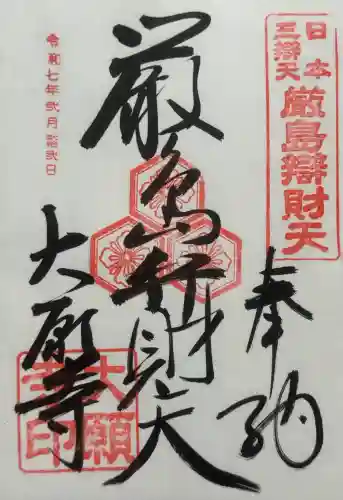 日本
三辯天
厳島辯財天
奉納
厳島弁財天
令和七年弐月拾弐日
大願寺
大願
寺印